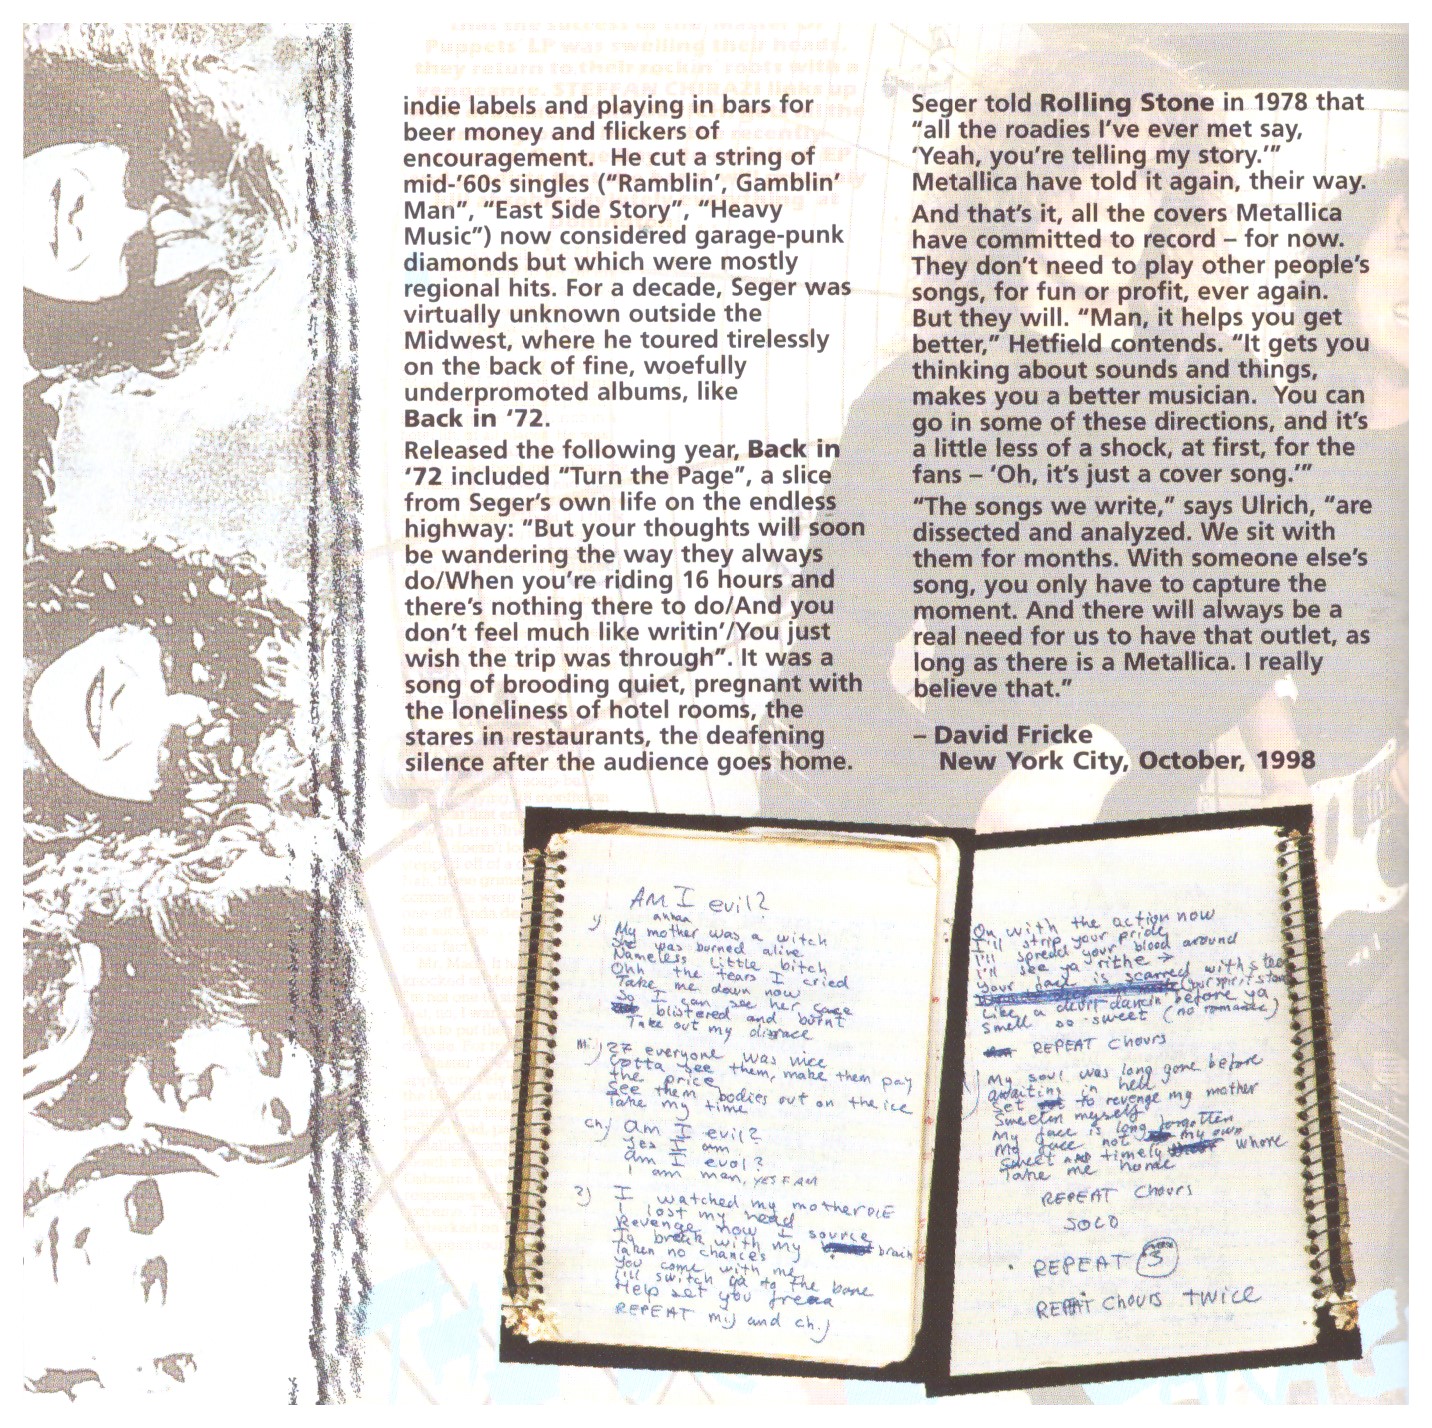 indie labels and playing in bars for
beer money and flickers of
encouragement.  He cut a string of
mid-‘60s singles (“Ramblin’, Gamblin’
Man”, “East Side Story”, “Heavy
Music”) now considered garage-punk
diamonds but which were mostly
regional hits. For a decade, Seger was
virtually unknown outside the
Midwest, where he toured tirelessly
on the back of fine, woefully
underpromoted albums, like
Back in ‘72.
Released the following year, Back in
‘72 included “Turn the Page”, a slice
from Seger’s own life on the endless
highway: “But your thoughts will soon
be wandering the way they always
do/When you’re riding 16 hours and
there’s nothing there to do/And you
don’t feel much like writin’/You just
wish the trip was through”. It was a
song of brooding quiet, pregnant with
the loneliness of hotel rooms, the
stares in restaurants, the deafening
silence after the audience goes home.
Seger told Rolling Stone in 1978 that
“all the roadies I’ve ever met say,
‘Yeah, you’re telling my story.’”
Metallica have told it again, their way.
And that’s it, all the covers Metallica
have committed to record – for now.
They don’t need to play other people’s
songs, for fun or profit, ever again.
But they will. “Man, it helps you get
better,” Hetfield contends. “It gets you
thinking about sounds and things,
makes you a better musician.  You can
go in some of these directions, and it’s
a little less of a shock, at first, for the
fans – ‘Oh, it’s just a cover song.’”
“The songs we write,” says Ulrich, “are
dissected and analyzed. We sit with
them for months. With someone else’s
song, you only have to capture the
moment. And there will always be a
real need for us to have that outlet, as
long as there is a Metallica. I really
believe that.”
– David Fricke
New York City, October, 1998
AM I evil?
My mother was a witch
She was burned alive
Nameless little bitch
Ohh the tears I cried
Take me down now
So I can see her
blistered and burnt
Take out my
mi) 27 everyone was nice
Gotta see them, make them pay
the price
See them bodies out on the ice
Take my time
ch) am I evil?
yes I am
am I evol?
I am man, YES I AM
2) I watched my mother DIE
I lost my head
Revenge now I source
To break with my brain
Taken no chances
You come with me
I'll switch ya to the bone
Help set you
REPEAT mi) and ch.)
On with the action now
I'll strip your pride
I'll spread your blood around
I'll see ya rithe →
your face is scarred with steel
Like a devil dancin before ya
smell so sweet (no romance)
REPEAT Chours
My soul was long gone before
awaiting in hell
Set to revenge my mother
Sweeten myself
My face is long forgotten
My face not my own
Sweet and timely whore
Take me home
REPEAT Chours
SOLO
REPEAT 3
REPEAT Chours twice